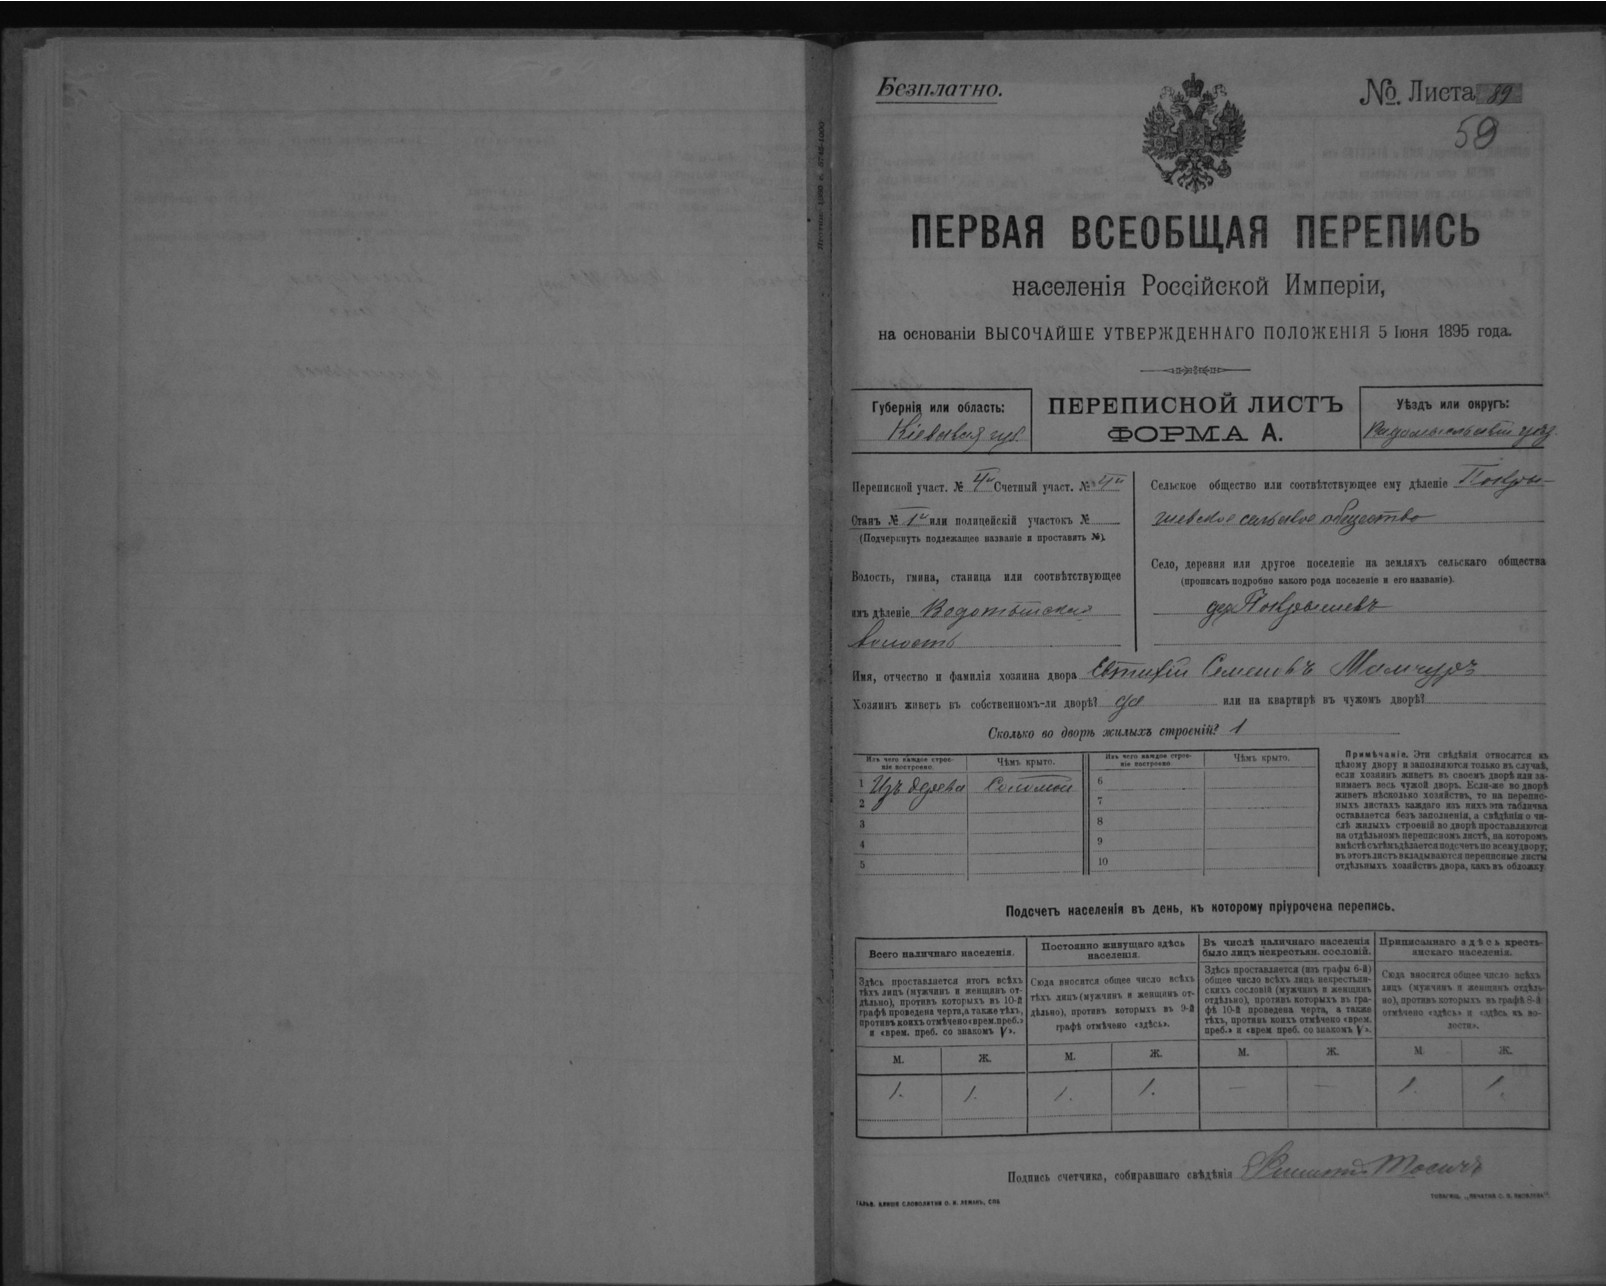 Безплатно.
№ Листа 89
59
ПЕРВАЯ ВСЕОБЩАЯ ПЕРЕПИСЬ
населенія Россійской Имперіи,
на основаніи ВЫСОЧАЙШЕ УТВЕРЖДЕННАГО ПОЛОЖЕНІЯ 5 Іюня 1895 года.
Губернія или область:
Кіевская губ.
ПЕРЕПИСНОЙ ЛИСТЪ
ФОРМА А.
Уѣздъ или округъ:
Радомысльскій уѣзд.
Переписной участ. № 4й Счетный участ. № 4й
Станъ № 1й или полицейскій участокъ №
(Подчеркнуть подлежащее названіе и проставить №).
Волость, гмина, станица или соотвѣтствующее
имъ дѣленіе Водотыйская
волость
Сельское общество или соотвѣтствующее ему дѣленіе Покры-
шевское сельское общество
Село, деревня или другое поселеніе на земляхъ сельскаго общества
(прописать подробно какого рода поселеніе и его названіе).
дер. Покрышевъ
Имя, отчество и фамилія хозяина двора Евтихій Семеновъ Мамчуръ
Хозяинъ живетъ въ собственномъ-ли дворѣ? да или на квартирѣ въ чужомъ дворѣ?
Сколько во дворѣ жилыхъ строеній? 1
Изъ чего каждое строе-
ніе построено.
Чѣмъ крыто.
Изъ чего каждое строе-
ніе построено
Чѣмъ крыто.
1 Изъ дерева Соломой 6
2 7
3 8
4 9
5 10
Примѣчаніе. Эти свѣдѣнія относятся къ
цѣлому двору и заполняются только въ случаѣ,
если хозяинъ живетъ въ своемъ дворѣ или за-
нимаетъ весь чужой дворъ. Если-же во дворѣ
живетъ нѣсколько хозяйствъ, то на перепис-
ныхъ листахъ каждаго изъ нихъ эта табличка
оставляется безъ заполненія, а свѣдѣнія о чи-
слѣ жилыхъ строеній во дворѣ проставляются
на отдѣльномъ переписномъ листѣ, на которомъ
вмѣстѣ съ тѣмъ дѣлается подсчетъ по всему двору;
въ этотъ листъ вкладываются переписные листы
отдѣльныхъ хозяйствъ двора, какъ въ обложку.
Подсчетъ населенія въ день, къ которому пріурочена перепись.
Всего наличнаго населенія.
Постоянно живущаго здѣсь
населенія.
Въ числѣ наличнаго населенія
было лицъ некрестьян. сословій.
Приписаннаго здѣсь кресть-
янскаго населенія.
Здѣсь проставляется итогъ всѣхъ
тѣхъ лицъ (мужчинъ и женщинъ от-
дѣльно), противъ которыхъ въ 10-й
графѣ проведена черта, а также тѣхъ,
противъ коихъ отмѣчено «врем. преб.»
и «врем. преб. со знакомъ V».
Сюда вносится общее число всѣхъ
тѣхъ лицъ (мужчинъ и женщинъ от-
дѣльно), противъ которыхъ въ 9-й
графѣ отмѣчено «здѣсь».
Здѣсь проставляется (изъ графы 6-й)
общее число всѣхъ лицъ некрестьян-
скихъ сословій (мужчинъ и женщинъ
отдѣльно), противъ которыхъ въ гра-
фѣ 10-й проведена черта, а также
тѣхъ, противъ коихъ отмѣчено «врем.
преб.» и «врем преб. со знакомъ V».
Сюда вносится общее число всѣхъ
лицъ (мужчинъ и женщинъ отдѣль-
но), противъ которыхъ въ графѣ 8-й
отмѣчено «здѣсь» и «здѣсь въ во-
лости».
М. Ж. М. Ж. М. Ж. М Ж.
1. 1. 1. 1. — — 1 1.
Подпись счетчика, собиравшаго свѣдѣнія